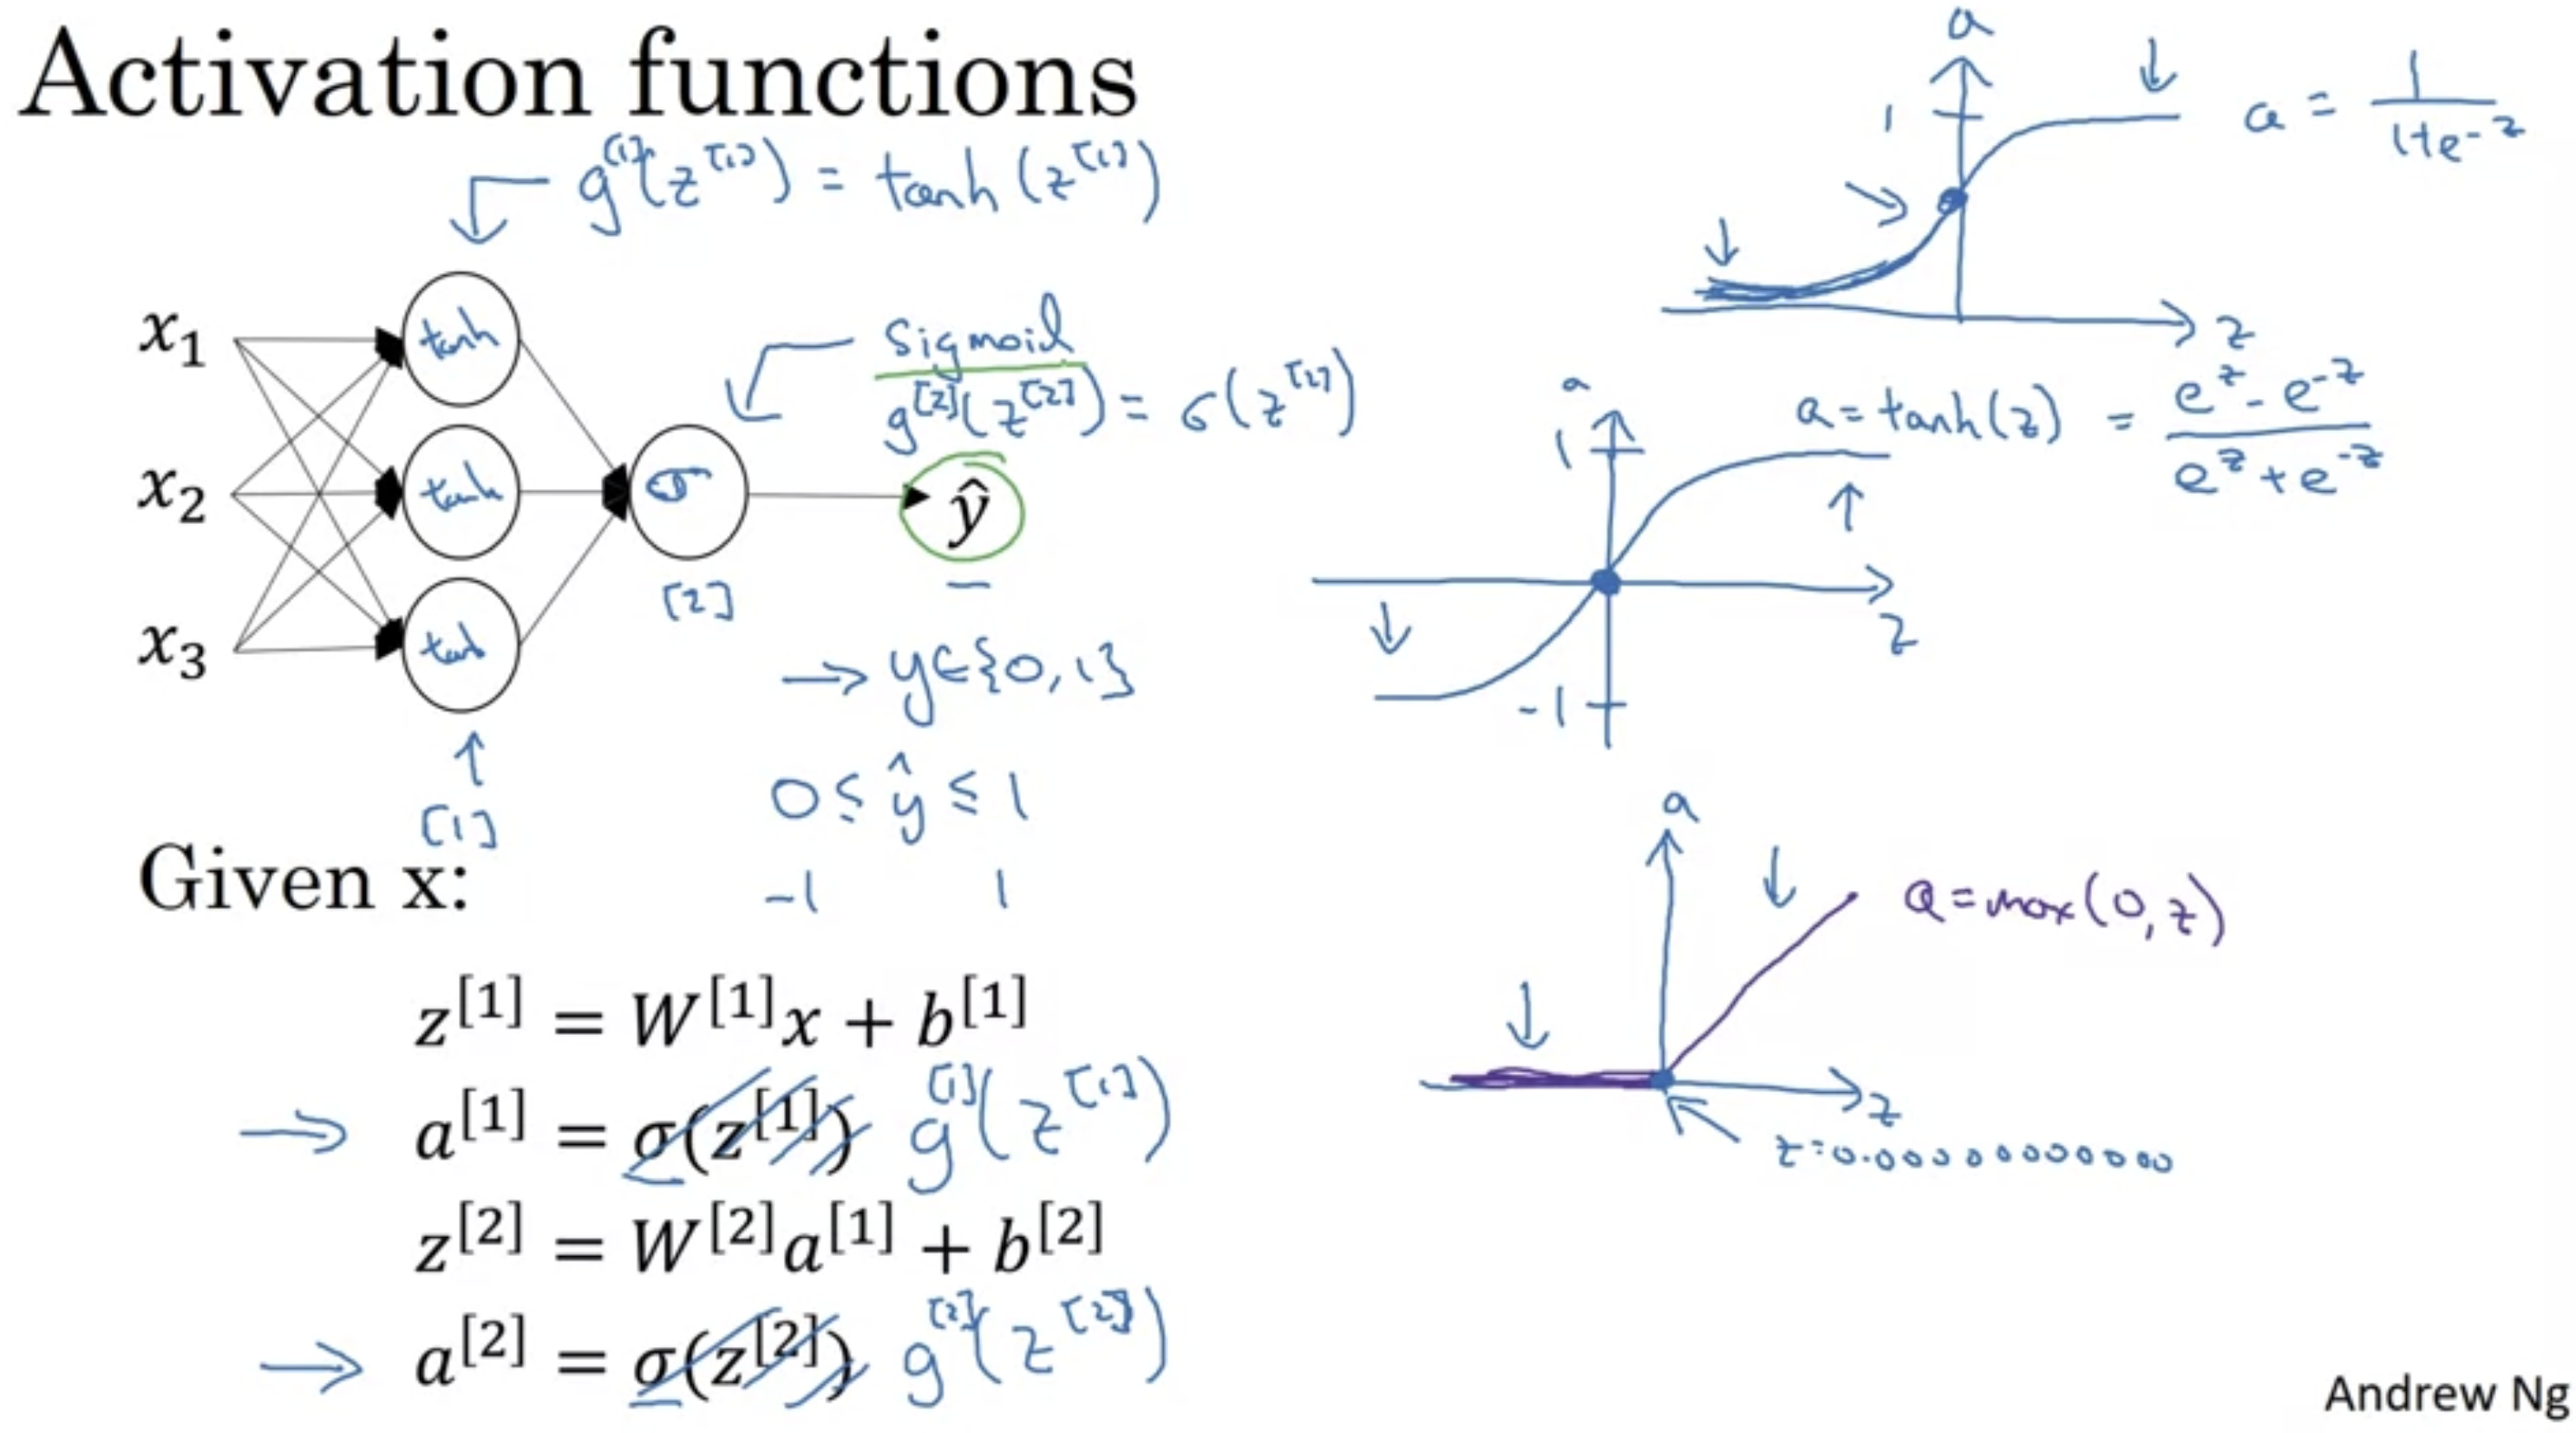 Activation functions
g[1](z[1]) = tanh(z[1])
x1
x2
x3
tanh
tanh
σ
[1]
[2]
sigmoid
g[2](z[2]) = σ(z[2])
ŷ
→ y∈{0,1}
0 ≤ ŷ ≤ 1
-1 1
Given x:
z[1] = W[1]x + b[1]
→ a[1] = σ(z[1]) g[1](z[1])
z[2] = W[2]a[1] + b[2]
→ a[2] = σ(z[2]) g[2](z[2])
a
1
a = 1/(1+e-z)
z
a
1
a = tanh(z) = (ez - e-z)/(ez + e-z)
z
-1
a
a = max(0,z)
z
z=0.00000000000
Andrew Ng